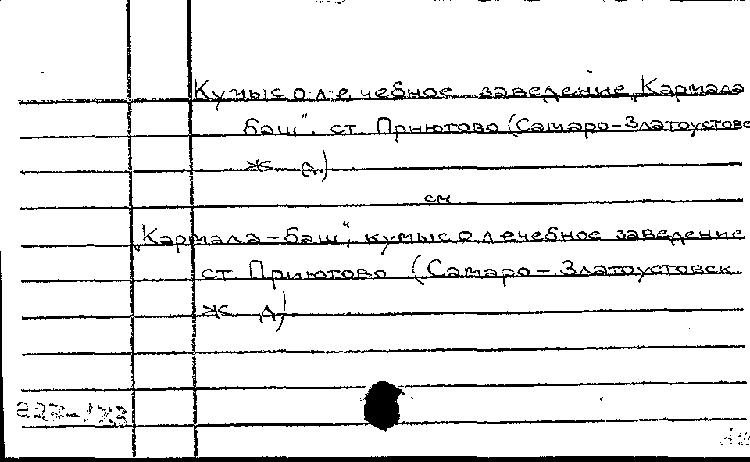 Кумысолечебное заведение „Кармала
баш“. ст. Приютово (Самаро-Златоустовс
ж. д.)
см
„Кармала-баш“, кумысолечебное заведение
ст Приютово (Самаро-Златоустовск.
ж д)